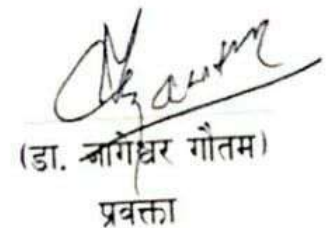 (डा. नागेश्वर गौतम)
प्रवक्ता